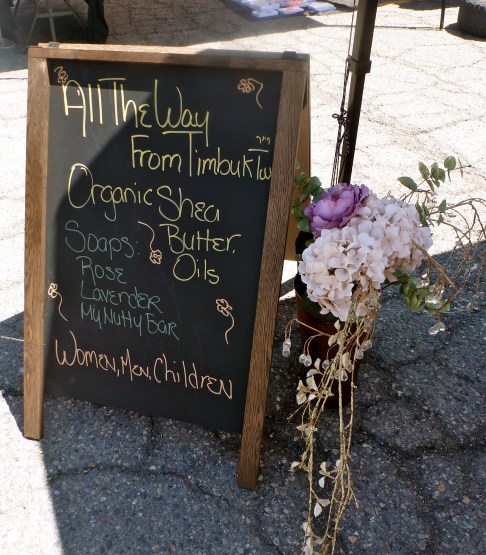 All The Way
From Timbuk Tuu
Organic Shea
Butter.
Oils
Soaps:
Rose
Lavender
My Nutty Bar
Women, Men, Children